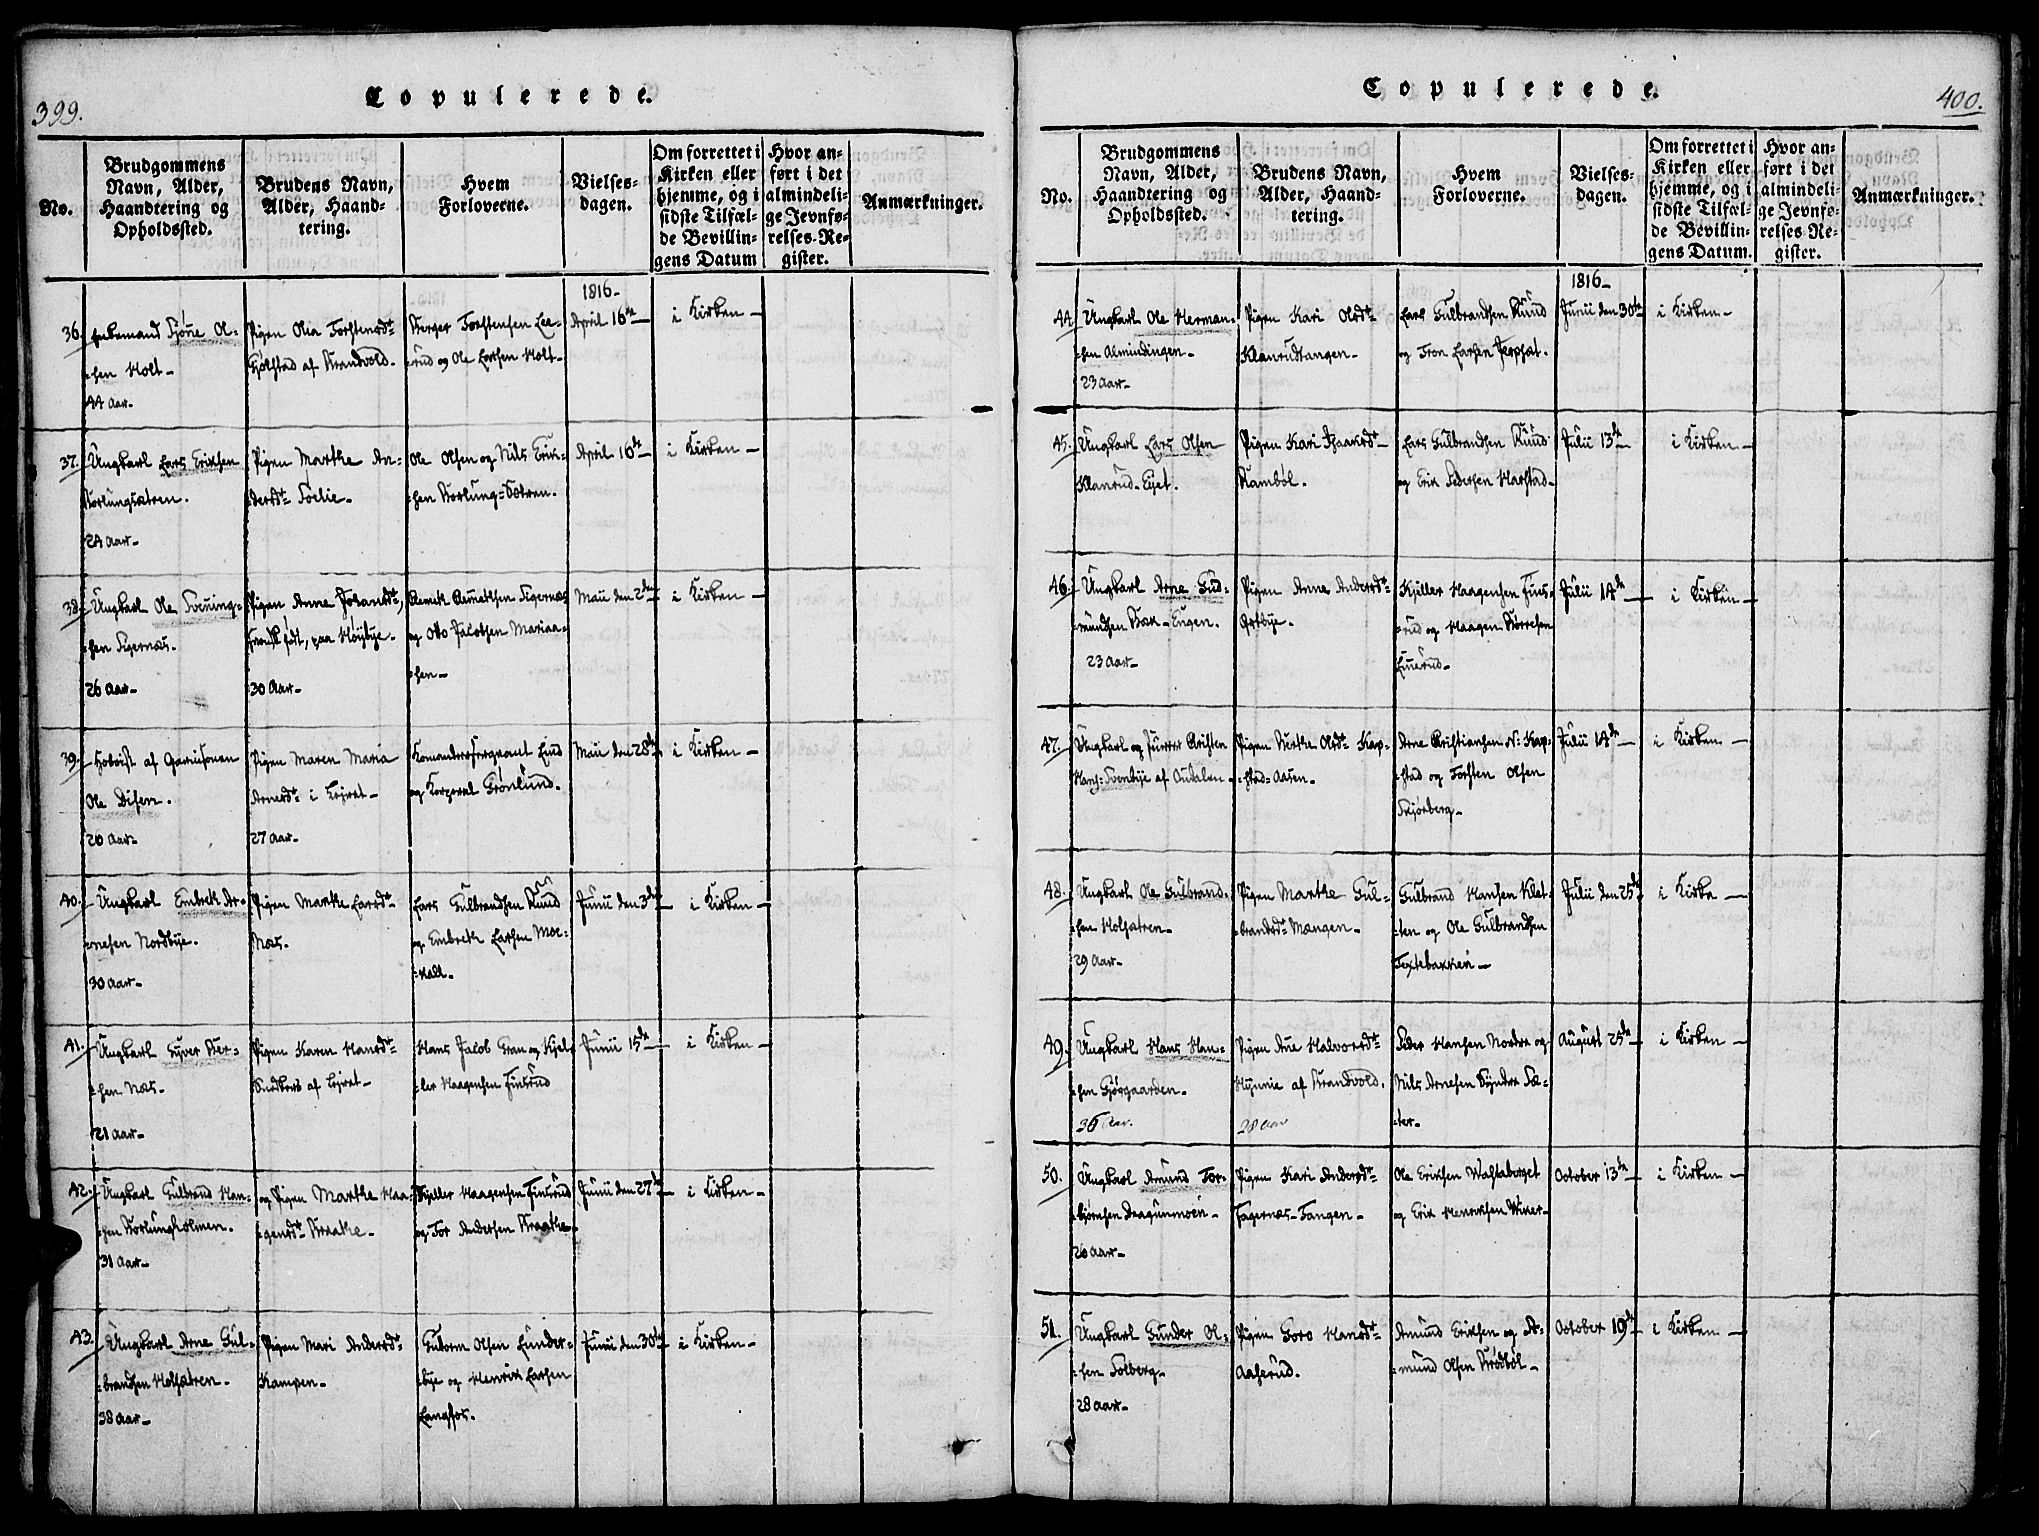 399.
Copulerede.
No.
Brudgommens
Navn, Alder,
Haandtering og
Opholdssted.
Brudens Navn,
Alder, Haand-
tering.
Hvem
Forloverne.
Vielses-
dagen.
Om forrettet i
Kirken eller
hjemme, og i
sidste Tilfæl-
de Bevillin-
gens Datum
Hvor an-
ført i det
almindeli-
ge Jevnfø-
relses-Re-
gister.
Anmærkninger.
1816-
36.
Enkemand Sjøne Ol-
-sen Holt-
44 Aar-
Pigen Olia Torstensdt
Gjølstad af Brandvold-
Berger Torstensen Lee-
-rud og Ole Larsen Holt-
April 16de
i Kirken-
37.
Ungkarl Lars Eriksen
Norlungsætren.
24 Aar-
Pigen Marthe An-
-dersdt Soelie-
Ole Olsen og Nils Erik-
-sen Norlung-Sætren.
April 16de
i Kirken-
38.
Ungkarl Ole Svening-
-sen Sigernæs.
26 Aar-
Pigen Anne Johansdt,
født, paa Høybye-
30 Aar-
Sigernæs
og Otto Jacobsen Mariaa-
-sen-
Maii den 2den
i Kirken-
39.
Hoboist af Garnisonen
Ole Disen.
20 Aar-
Pigen Maren Maria
Arnesdt i Lejret-
27 Aar-
Komandersergeant Lind
og Korporal Grønlund.
Maii den 28de
i Kirken-
40.
Ungkarl Embrek Ar-
-nesen Nordbye.
30 Aar-
Pigen Marthe Larsdt
Næs.
Lars Gulbrandsen Ruud
og Embrek Larsen Moe-
-kald-
Junii den 3de
i Kirken-
41.
Ungkarl Syver Ber-
-sen Næs-
21 Aar-
Pigen Karen Hansdt
af Lejret-
Hans Jacob Gran og Kjel-
-ler Haagensen Finsrud
Junii 15de
i Kirken-
42.
Ungkarl Gulbrand Han-
-sen Norlungholmen.
31 Aar-
og Pigen Marthe Haa-
-gensdt Braathe-
Kjeller Haagensen Finsrud
og Tor Andersen Braathe-
Junii den 27de
i Kirken-
43.
Ungkarl Arne Gul-
-brandsen Holsætren-
38 Aar-
Pigen Mari Andersdt
Kampen-
Guttorm Olsen Lunder-
-bye og Henrik Larsen
Langfos.
Junii den 30te
i Kirken-
400.
Copulerede.
No.
Brudgommens
Navn, Alder,
Haandtering og
Opholdssted.
Brudens Navn,
Alder, Haand-
tering.
Hvem
Forloverne.
Vielses-
dagen.
Om forrettet i
Kirken eller
hjemme, og i
sidste Tilfæl-
de Bevillin-
gens Datum.
Hvor an-
ført i det
almindeli-
ge Jevnfø-
relses-Re-
gister.
Anmærkninger.
1816-
44
Ungkarl Ole Herman-
-sen Almindingen-
23 Aar-
Pigen Kari Olsdt
Klanrudtangen-
Lars Gulbrandsen Ruud
og Tron Larsen
Junii den 30te
i Kirken-
45.
Ungkarl Lars Olsen
Klanrud-Eyet.
Pigen Kari
Rambøl.
Lars Gulbrandsen Ruud
og Erik Pedersen Harstad-
Julii 13de
i Kirken-
46.
Ungkarl Arne Gud-
-mundsen Bæk-Engen.
23 Aar-
Pigen Anne Andersdt
Ostbye.
Kjeller Haagensen Fins-
-rud og Haagen
Julii 14de
i Kirken-
47.
Ungkarl og Kristen
Hans: Svenbye af Oudalen-
Pigen Berthe Olsdt Kop-
-stad-Aasen.
Arne Kristiansen N: Kop-
-stad og Torsten Olsen
Skjørberg-
Julii 14de
i Kirken-
48.
Ungkarl Ole Gulbrand-
-sen Holsætren-
29 Aar-
Pigen Marthe Gul-
-brandsdt Mængen-
Gulbrand Hansen Klet-
-ten og Ole Gulbrandsen
Textebakken-
Julii den 25de
i Kirke-
49.
Ungkarl Hans Han-
-sen Gjøsgaarden.
36 Aar.
Pigen Ane Halvorsdt
Hynnie af Brandvold.
28 aar
Peder Hansen Nordre og
Nils Arnesen Syndre Sæ-
-ter-
August 25de
i Kirken-
50.
Ungkarl Amund Tor-
-bjørnsen Dragunmoen-
26 Aar-
Pigen Kari Andersdt
Fagernæs-Tangen-
Ole Eriksen Wastaberget
og Erik Henriksen Wiker-
October 13de
i Kirken-
51.
Ungkarl Gunder Ol-
-sen Solberg-
28 Aar-
Pigen Goro Hansdt
Aaserud.
Amund Eriksen og A-
-mund Olsen Brødbøl-
October 19de
i Kirken-